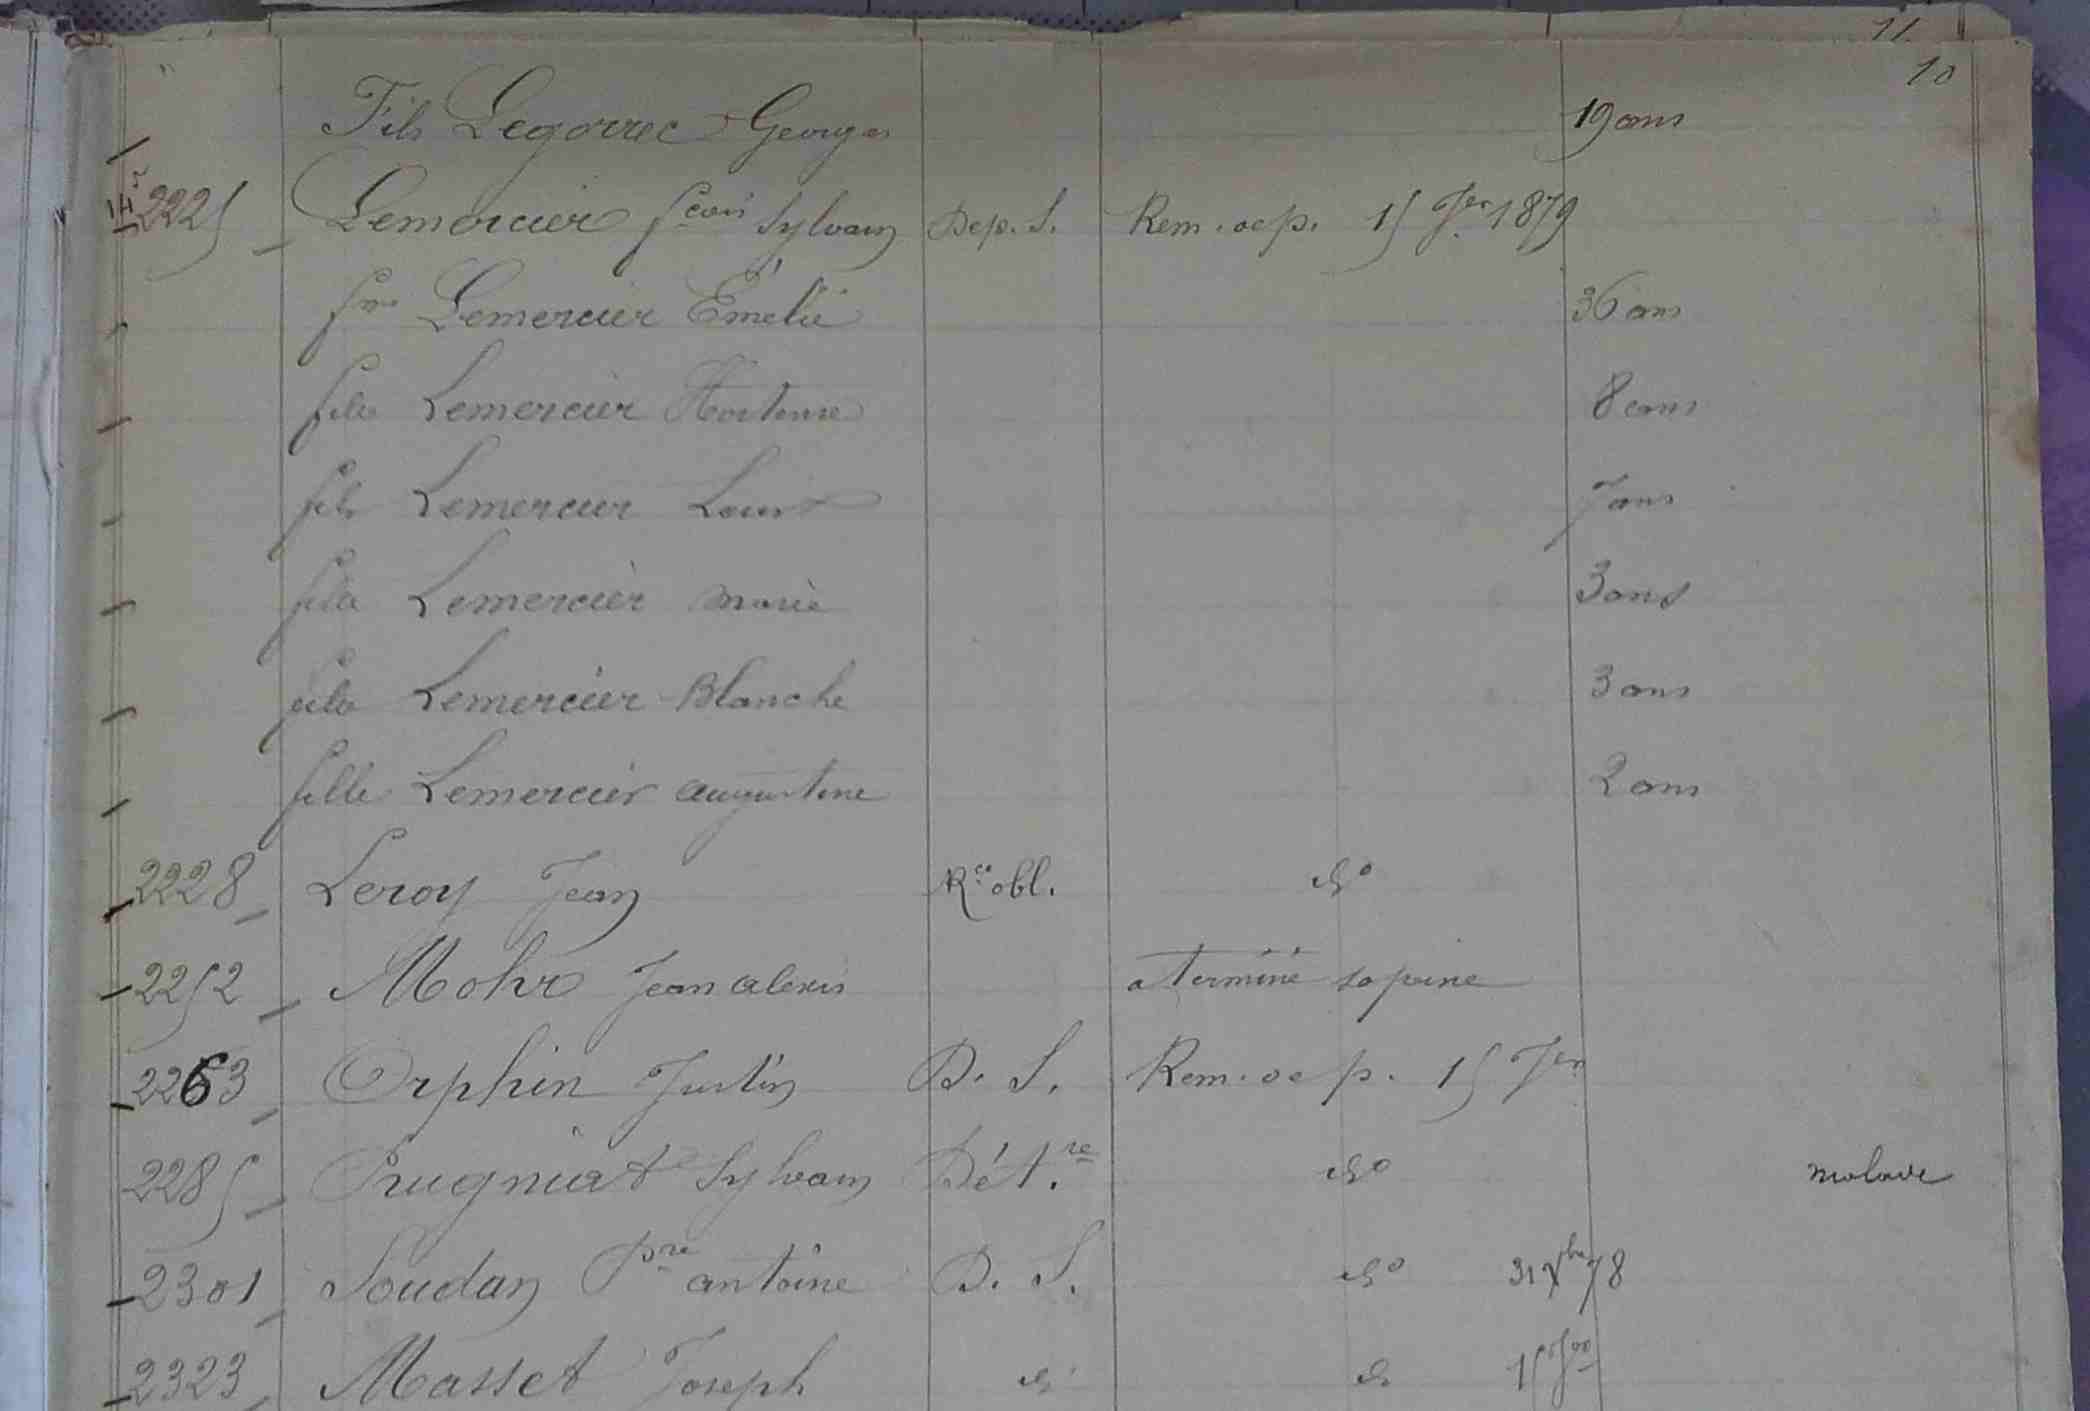 11.
10
Fils Legorrec Georges 19 ans
14 2225 Lemercier fcois Sylvain Dep. S. Rem. de p. 15 Jer 1879
fme Lemercier Émélie 36 ans
fille Lemercier Hortense 8 ans
fils Lemercier Louis 7 ans
fille Lemercier Marie 3 ans
fille Lemercier Blanche 3 ans
fille Lemercier augustine 2 ans
2228 Leroy Jean Rce obl. do
2252 Mohr Jean alexis a terminé sa peine
2263 Orphin Justin D. S. Rem. de p. 15 Jer
2285 Prugniat Sylvain Dét.re do malade
2301 Soudan Pre antoine D. S. do 31 Xbre 78
2323 Masset Joseph do do 15 Jer